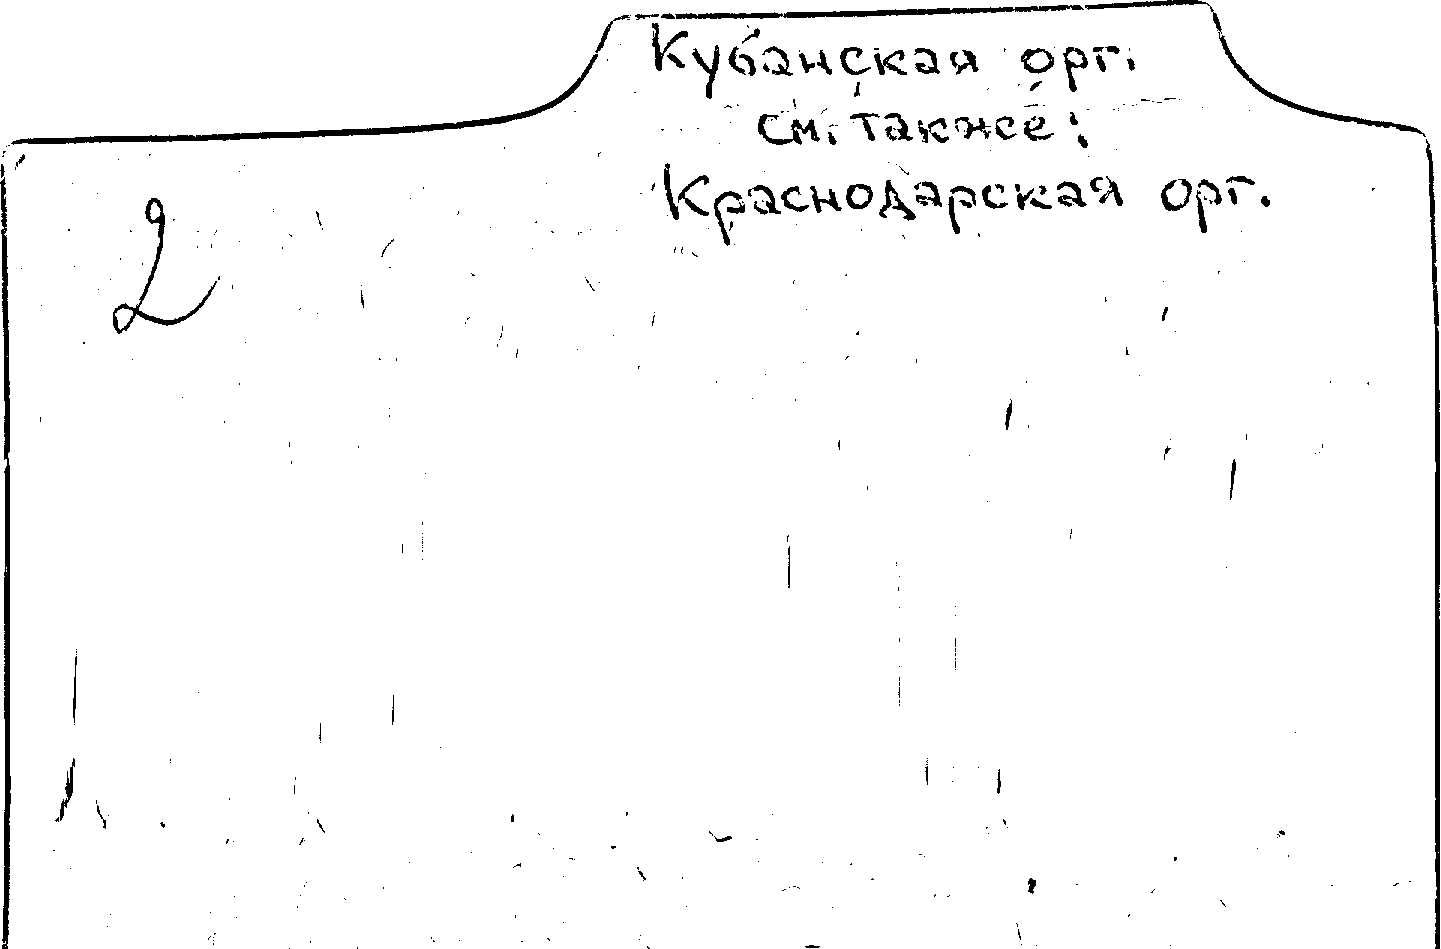 Кубанская орг.
см. также:
Краснодарская орг.
2